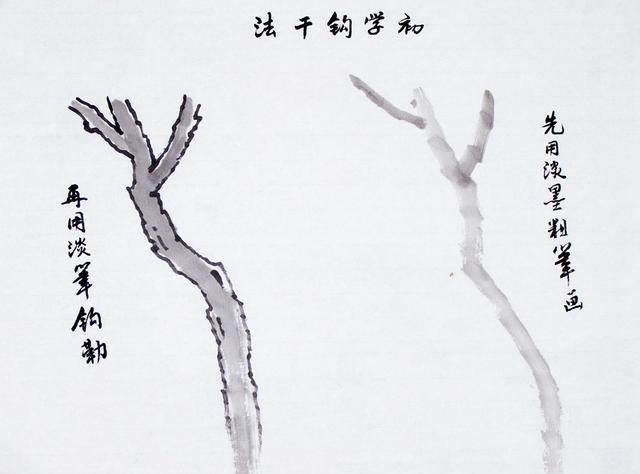 初学钩干法
先用淡墨粗笔画
再用淡笔钩勒